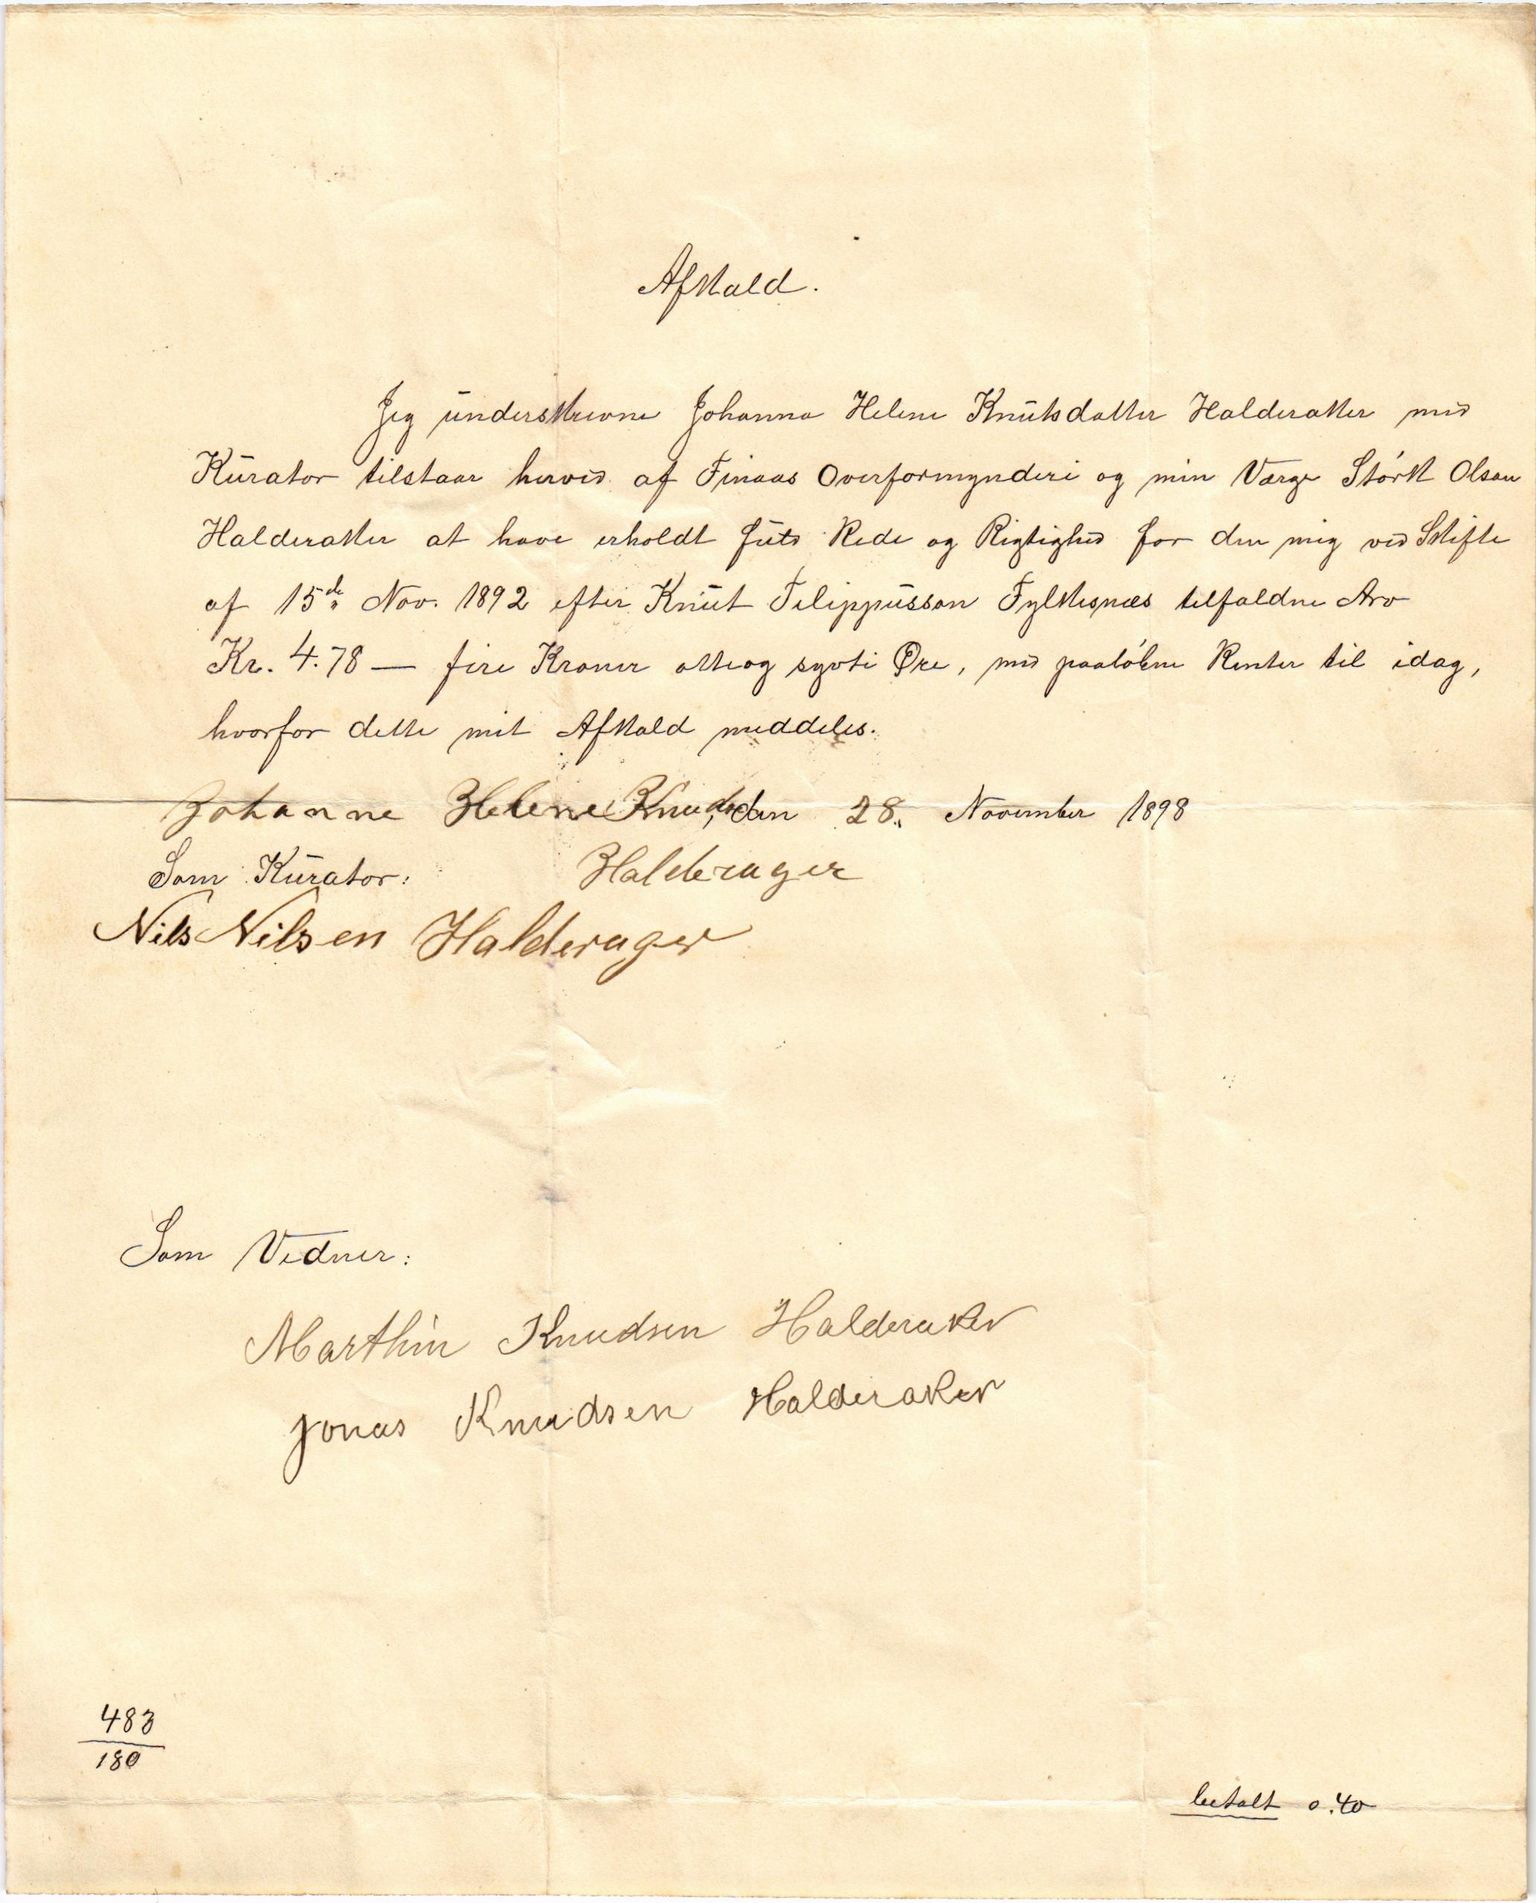 Afkald.
Jeg underskrevne Johanna Helene Knutsdatter Halderaker med
Kurator tilstaar herved af Finaas Overformynderi og min Værge Størk Olson
Halderaker at have erholdt fuld Rede og Rigtighed for den mig ved Skifte
af 15de Nov. 1892 efter Knut Filippusson Fylkesnæs tilfaldne Arv
Kr. 4.78 — fire Kroner otteog sytti Øre, med paaløbne Renter til idag,
hvorfor dette mit Afkald meddeles.
Johanne Helene Knuds, den 28. November 1898
Som Kurator: Halderager
Nils Nilsen Halderager
Som Vidner:
Marthin Knudsen Halderaker
Jonas Knudsen Halderaker
483
180
betalt 0.40